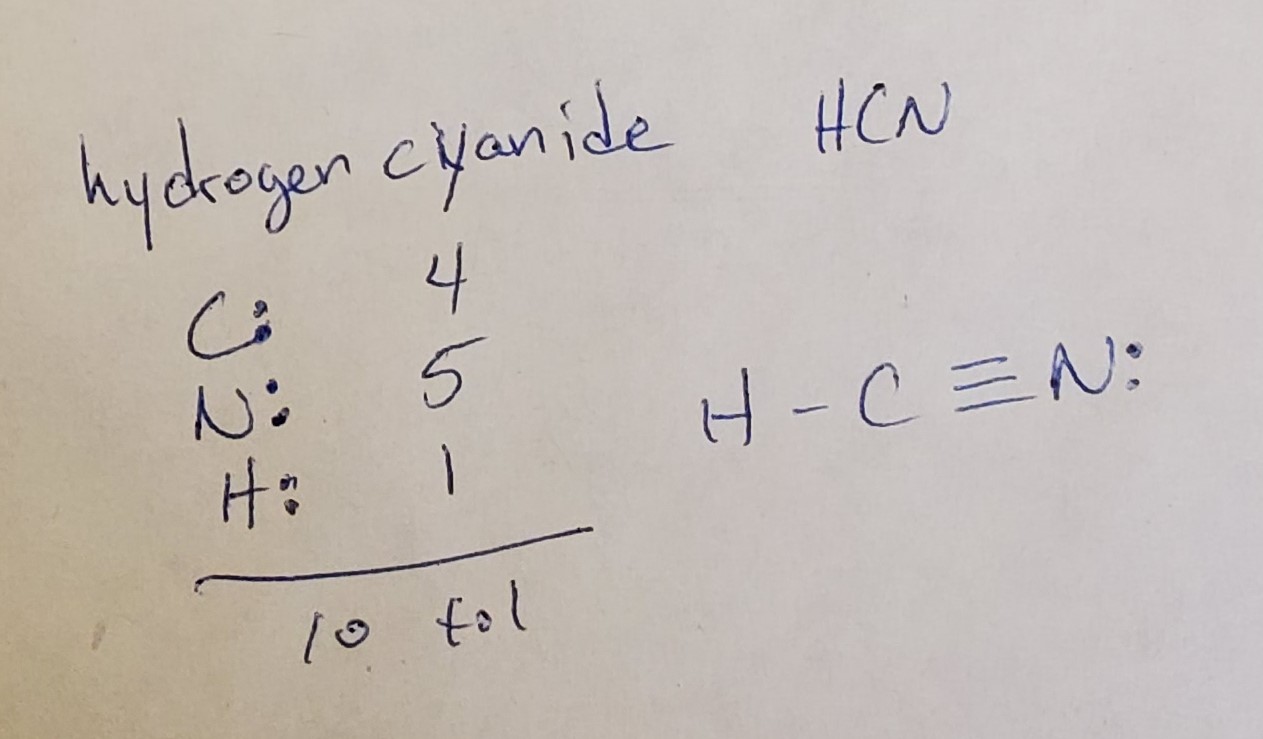 hydrogen cyanide HCN
C: 4
N: 5
H: 1
10 tol
H - C ≡ N: